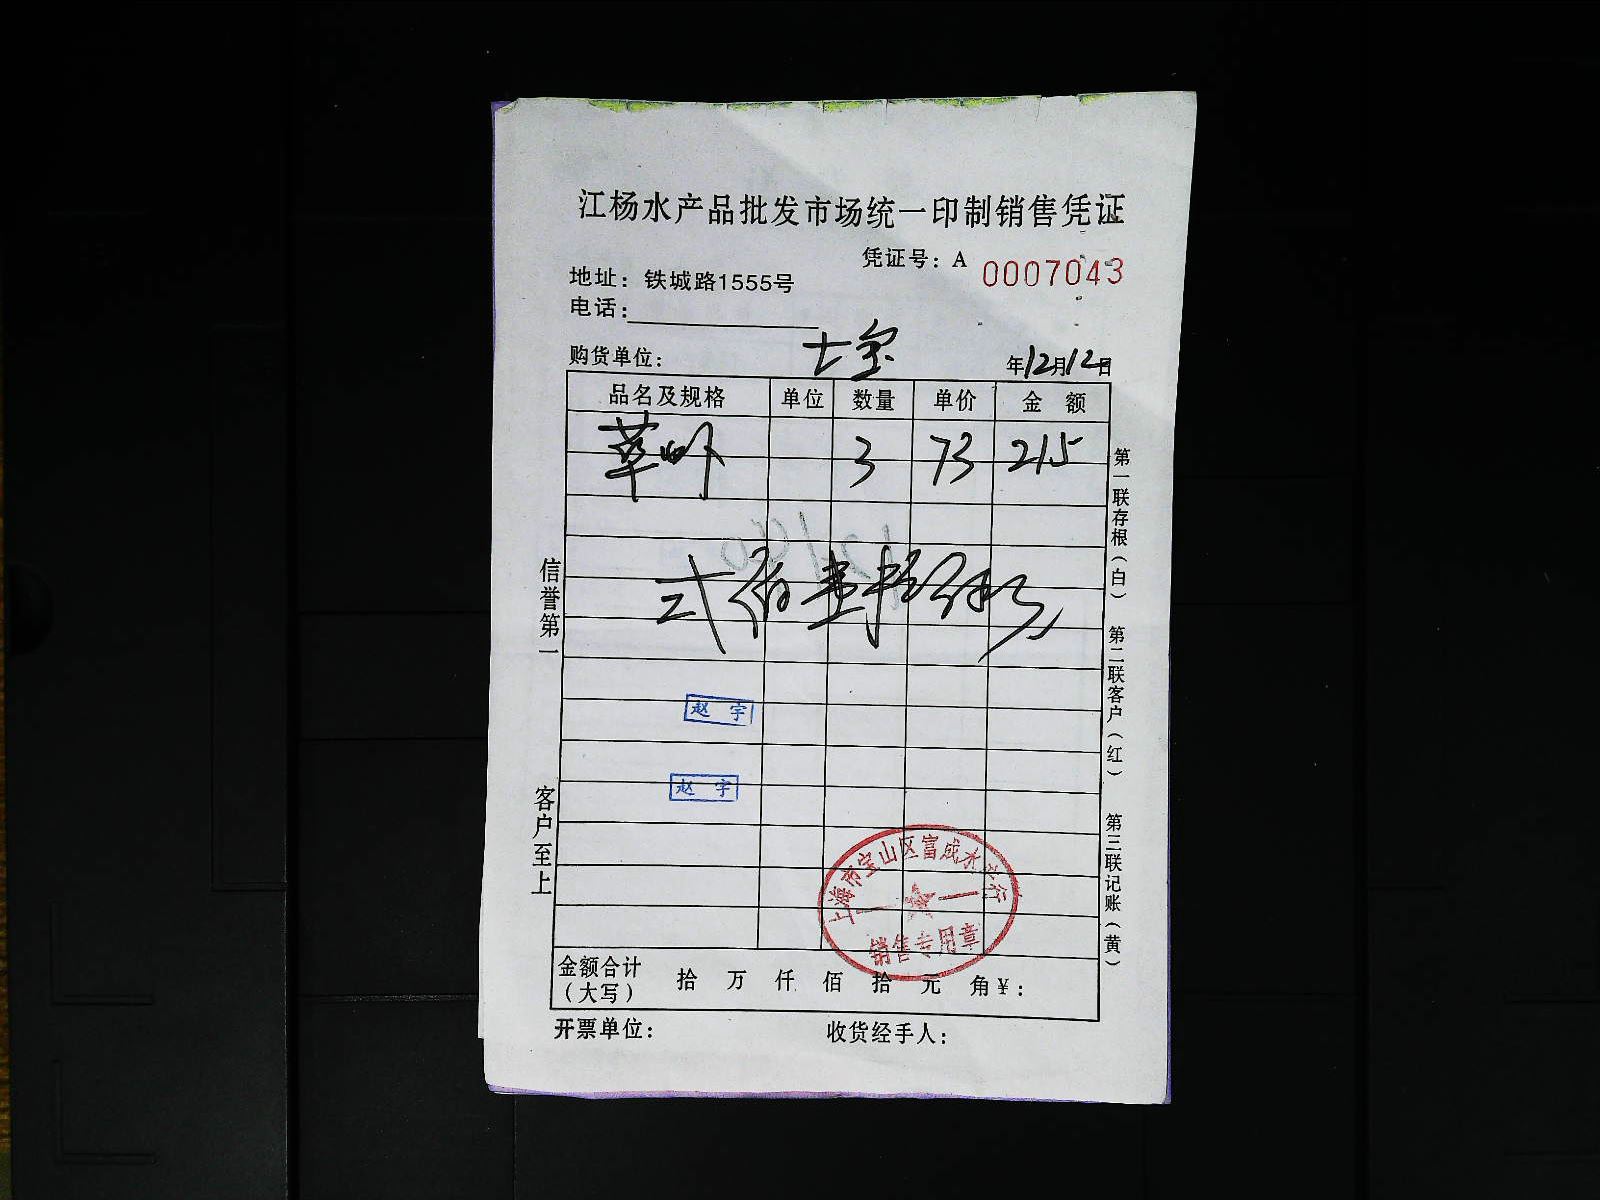 江杨水产品批发市场统一印制销售凭证
凭证号：A 0007043
地址：铁城路1555号
电话：
购货单位：七宝 年12月12日
品名及规格 单位 数量 单价 金 额
草虾 3 73 215
贰佰壹拾伍元
赵 宇
赵 宇
上海市宝山区富成水产行
销售专用章
金额合计（大写） 拾 万 仟 佰 拾 元 角 ¥：
开票单位： 收货经手人：
信誉第一
客户至上
第一联存根（白） 第二联客户（红） 第三联记账（黄）